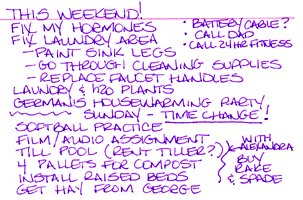 THIS WEEKEND!
FIX MY HORMONES
FIX LAUNDRY AREA
- PAINT SINK LEGS
- GO THROUGH CLEANING SUPPLIES
- REPLACE FAUCET HANDLES
LAUNDRY & H2O PLANTS
GERMAN'S HOUSEWARMING PARTY
SUNDAY - TIME CHANGE!
SOFTBALL PRACTICE
FILM/AUDIO ASSIGNMENT
TILL POOL (RENT TILLER?)
4 PALLETS FOR COMPOST
INSTALL RAISED BEDS
GET HAY FROM GEORGE
• BATTERY CABLE?
• CALL DAD
• CALL 24 HR FITNESS
WITH
ALEXANDRA
BUY
RAKE
& SPADE